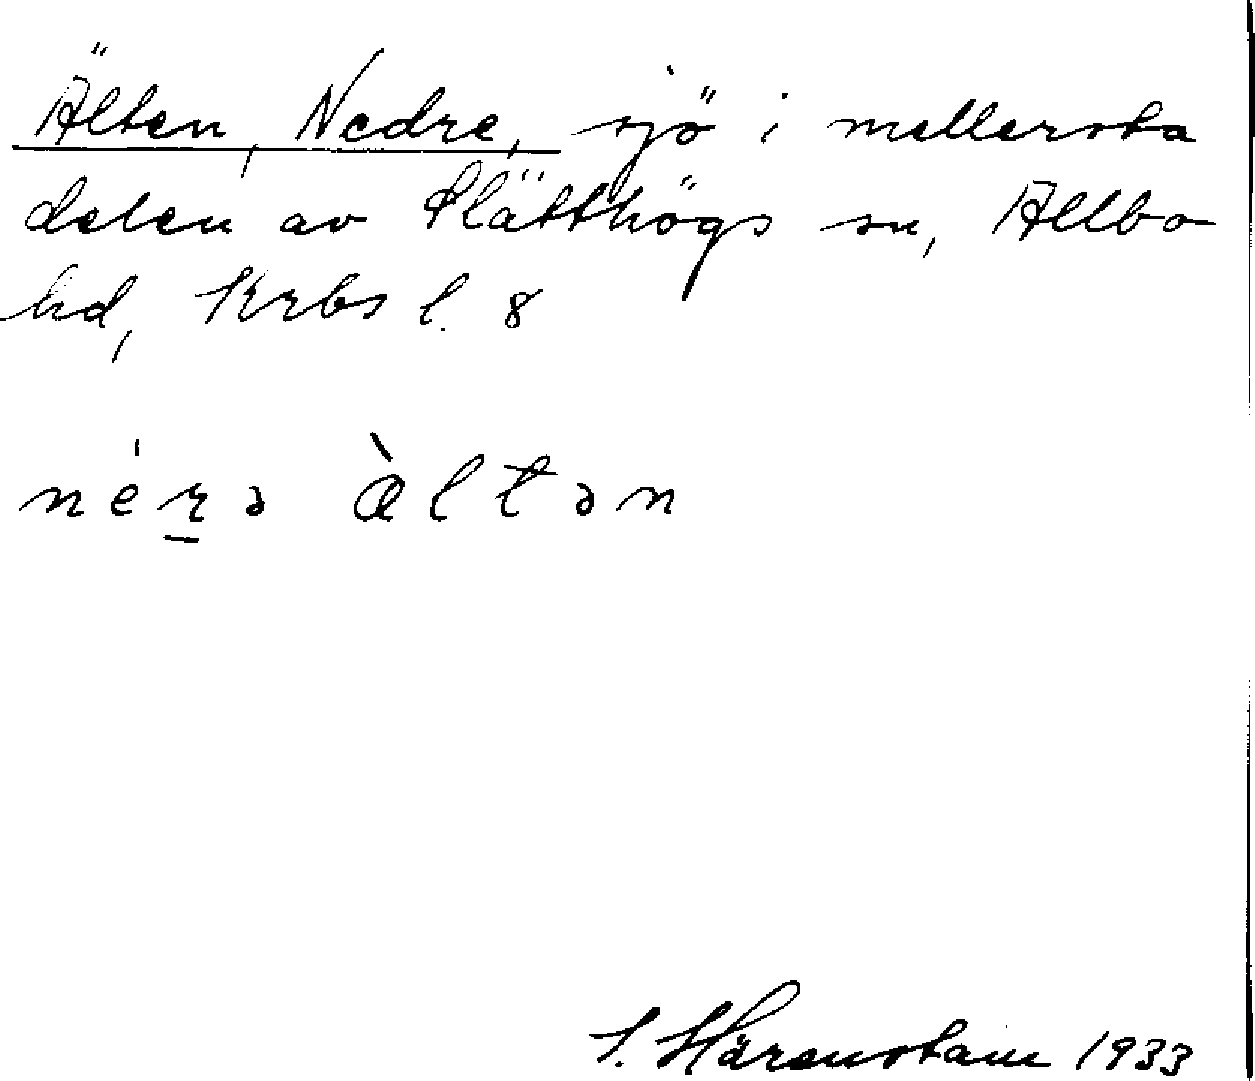 Älten, Nedre, sjö i mellersta
delen av Slätthögs sn, Allbo
hd, Krbs l. 8
nérə æ̀ltən
S. Härenstam 1933